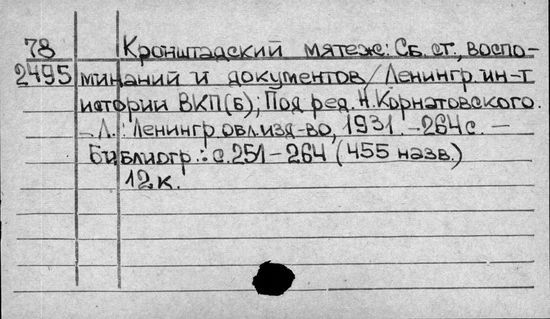 78 Кронштадский мятеж: Сб. ст., воспо-
2495 минаний и документов / Ленингр. ин-т
истории ВКП(б); Под ред. Н. Корнатовского.
- Л.: Ленингр. обл. изд-во, 1931. - 264 с. -
Библиогр.: с. 251 - 264 (455 назв.)
12 к.